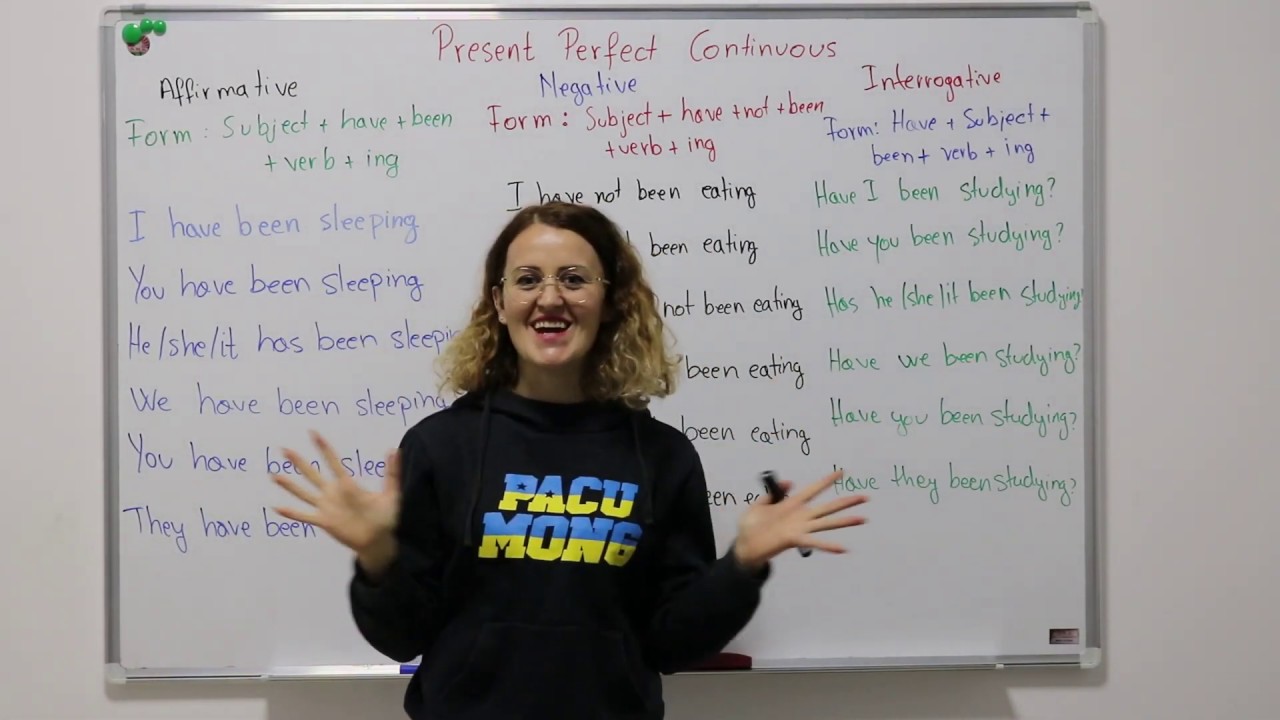 Present Perfect Continuous
Affirmative
Form : Subject + have + been
+ verb + ing
I have been sleeping
You have been sleeping
He/she/it has been
We have been sleeping
You have been
They have been
Negative
Form : Subject + have + not + been
+ verb + ing
I have not been eating
been eating
not been eating
been eating
been eating
Interrogative
Form: Have + Subject +
been + verb + ing
Have I been studying?
Have you been studying?
Has he/she/it been studying
Have we been studying?
Have you been studying?
Have they been studying?
PACU
MONG